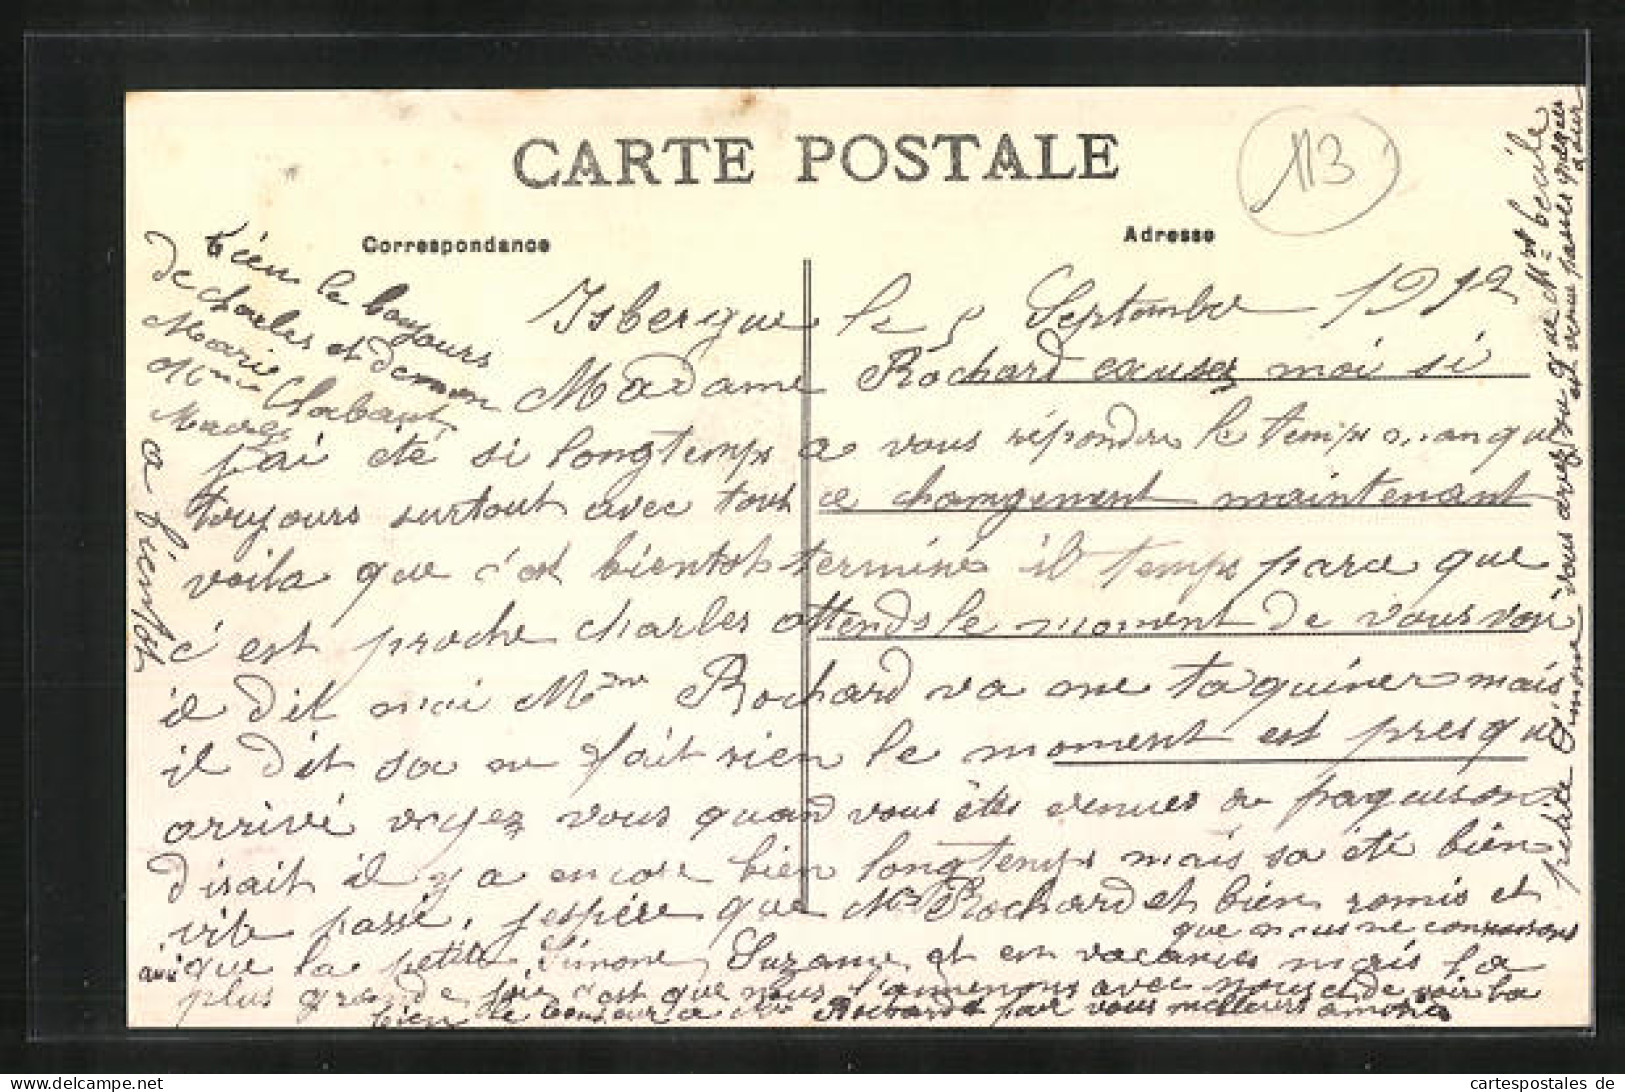 CARTE POSTALE
113
Correspondance
Adresse
Isbergue le 5 Septembre 1912
Madame Rochard excuses moi si
j'ai été si longtemps a vous répondre le temps manque
toujours surtout avec tout ce changement maintenant
voila que c'est bientot terminé il temps parce que
c'est proche charles attends le moment de vous voir
il dit moi Mme Rochard va me taquiner mais
il dit sa ne fait rien le moment est presque
arrivé voyez vous quand vous êtes venues on
disait il y a encore bien longtemps mais sa été bien
vite passé. j'espére que Mr Rochard et bien romis et
que la petite Simone, Suzanne et en vacances mais la
plus grande joie c'est que nous l'amenons avec nous et de voir la
que nous ne connaissons
bien le bonjour a Mr Rochard par vous meilleurs amitiés
petite Simone vous avez vu que Mr
est venue passer quelques
bien le bonjours
de charles et de mon
Marie
Mme Chabaut
a bientot
cartespostales de